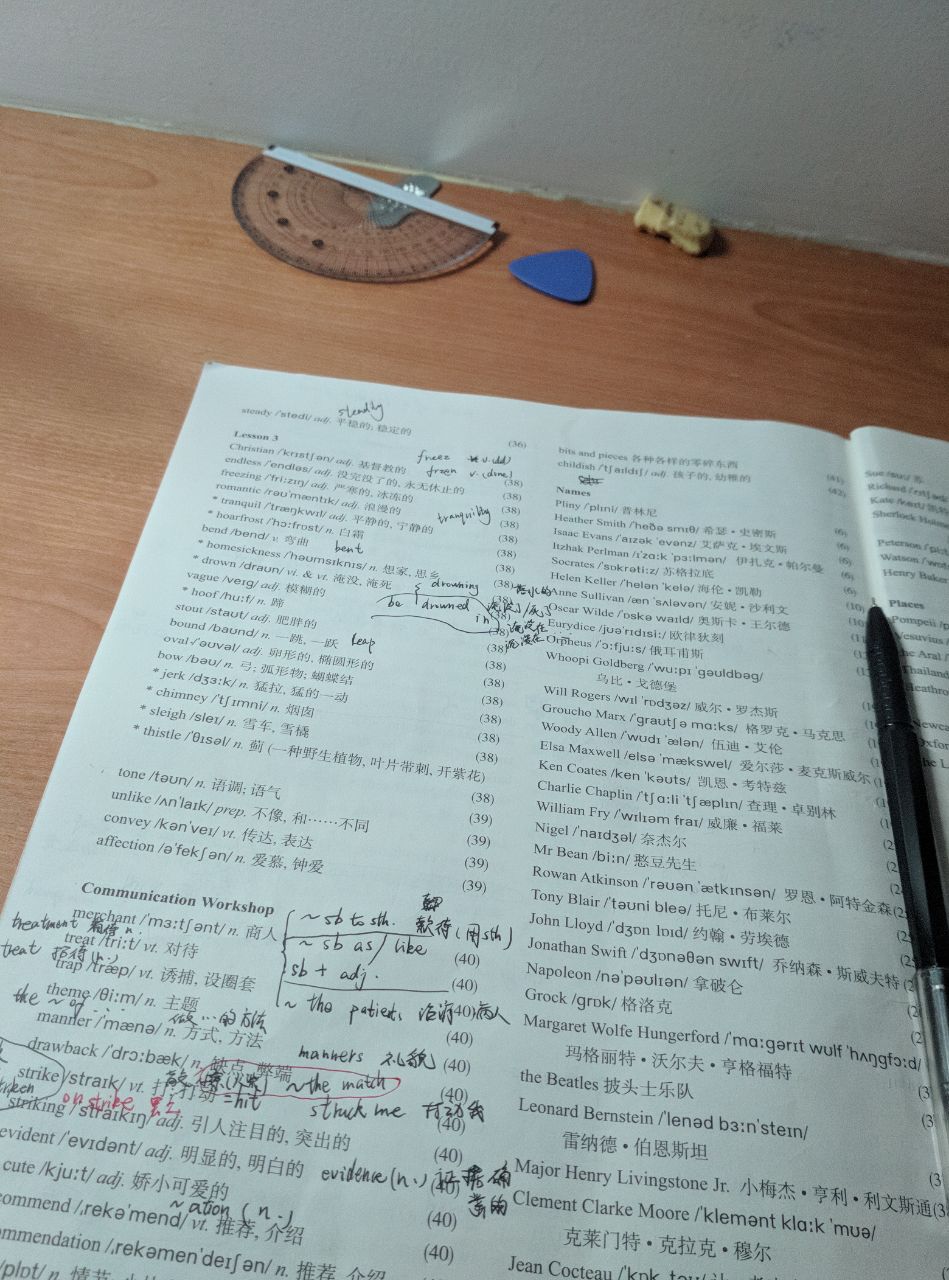 steady /ˈstedi/ adj. 平稳的; 稳定的 (36)
steadily
Lesson 3
Christian /ˈkrɪstʃən/ adj. 基督教的
endless /ˈendləs/ adj. 没完没了的, 永无休止的 (38)
freezing /ˈfriːzɪŋ/ adj. 严寒的, 冰冻的 (38)
romantic /rəʊˈmæntɪk/ adj. 浪漫的 (38)
* tranquil /ˈtræŋkwɪl/ adj. 平静的, 宁静的 (38)
* hoarfrost /ˈhɔːfrɒst/ n. 白霜 (38)
bend /bend/ v. 弯曲 bent (38)
* homesickness /ˈhəʊmsɪknɪs/ n. 想家, 思乡 (38)
* drown /draʊn/ vi. & vt. 淹没, 淹死 (38)
drowning
vague /veɪɡ/ adj. 模糊的 (38)
be drowned in
* hoof /huːf/ n. 蹄 (38)
stout /staʊt/ adj. 肥胖的 (38)
bound /baʊnd/ n. 一跳, 一跃 leap (38)
oval /ˈəʊvəl/ adj. 卵形的, 椭圆形的 (38)
bow /bəʊ/ n. 弓; 弧形物; 蝴蝶结 (38)
* jerk /dʒɜːk/ n. 猛拉, 猛的一动 (38)
* chimney /ˈtʃɪmni/ n. 烟囱 (38)
* sleigh /sleɪ/ n. 雪车, 雪橇 (38)
* thistle /ˈθɪsəl/ n. 蓟 (一种野生植物, 叶片带刺, 开紫花)
(38)
tone /təʊn/ n. 语调; 语气 (39)
unlike /ʌnˈlaɪk/ prep. 不像, 和……不同 (39)
convey /kənˈveɪ/ vt. 传达, 表达 (39)
affection /əˈfekʃən/ n. 爱慕, 钟爱 (39)
Communication Workshop
merchant /ˈmɜːtʃənt/ n. 商人
~ sb to sth. 款待(用sth)
treatment
treat /triːt/ vt. 对待 (40)
~ sb as / like
treat 招待
trap /træp/ vt. 诱捕, 设圈套 (40)
sb + adj.
theme /θiːm/ n. 主题 (40)
~ the patients 治疗病人
the ~ of ... 做…的方法
manner /ˈmænə/ n. 方式, 方法 (40)
manners 礼貌
drawback /ˈdrɔːbæk/ n. 缺点, 弊端 (40)
strike /straɪk/ vt. 打, 打动 (40)
~ the match
on strike 罢工
=hit
struck me 打动我
striking /ˈstraɪkɪŋ/ adj. 引人注目的, 突出的 (40)
evident /ˈevɪdənt/ adj. 明显的, 明白的 (40)
evidence (n.) 证据
cute /kjuːt/ adj. 娇小可爱的 (40)
~ation (n.)
commend /ˌrekəˈmend/ vt. 推荐, 介绍 (40)
mmendation /ˌrekəmenˈdeɪʃən/ n. 推荐, 介绍 (40)
/plɒt/ n. 情节
freeze
frozen v. (done)
tranquility
bits and pieces 各种各样的零碎东西 (41)
childish /ˈtʃaɪldɪʃ/ adj. 孩子的, 幼稚的 (42)
Names
Pliny /ˈplɪni/ 普林尼 (6)
Heather Smith /ˈheðə smɪθ/ 希瑟·史密斯 (6)
Isaac Evans /ˈaɪzək ˈevənz/ 艾萨克·埃文斯 (6)
Itzhak Perlman /ˈɪtzɑːk ˈpɜːlmən/ 伊扎克·帕尔曼 (6)
Socrates /ˈsɒkrətiːz/ 苏格拉底
Helen Keller /ˈhelən ˈkelə/ 海伦·凯勒
Anne Sullivan /æn ˈsʌləvən/ 安妮·沙利文
Oscar Wilde /ˈɒskə waɪld/ 奥斯卡·王尔德
Eurydice /jʊəˈrɪdɪsiː/ 欧律狄刻
Orpheus /ˈɔːfjuːs/ 俄耳甫斯
Whoopi Goldberg /ˈwuːpɪ ˈɡəʊldbəɡ/
乌比·戈德堡
Will Rogers /wɪl ˈrɒdʒəz/ 威尔·罗杰斯
Groucho Marx /ˈɡraʊtʃə mɑːks/ 格罗克·马克思
Woody Allen /ˈwʊdɪ ˈælən/ 伍迪·艾伦
Elsa Maxwell /elsə ˈmækswel/ 爱尔莎·麦克斯威尔
Ken Coates /ken ˈkəʊts/ 凯恩·考特兹
Charlie Chaplin /ˈtʃɑːli ˈtʃæplɪn/ 查理·卓别林
William Fry /ˈwɪlɪəm fraɪ/ 威廉·福莱
Nigel /ˈnaɪdʒəl/ 奈杰尔
Mr Bean /biːn/ 憨豆先生
Rowan Atkinson /ˈrəʊən ˈætkɪnsən/ 罗恩·阿特金森
Tony Blair /ˈtəʊni bleə/ 托尼·布莱尔
John Lloyd /ˈdʒɒn lɒɪd/ 约翰·劳埃德
Jonathan Swift /ˈdʒɒnəθən swɪft/ 乔纳森·斯威夫特
Napoleon /nəˈpəʊlɪən/ 拿破仑
Grock /ɡrɒk/ 格洛克
Margaret Wolfe Hungerford /ˈmɑːɡərɪt wʊlf ˈhʌŋɡfɔːd/
玛格丽特·沃尔夫·亨格福特
the Beatles 披头士乐队
Leonard Bernstein /ˈlenəd bɜːnˈsteɪn/
雷纳德·伯恩斯坦
Major Henry Livingstone Jr. 小梅杰·亨利·利文斯通
Clement Clarke Moore /ˈklemənt klɑːk ˈmʊə/
克莱门特·克拉克·穆尔
Jean Cocteau
Sue /suː/ 苏
Richard
Kate
Sherlock
Peterson
Watson
Henry
Places
Pompeii
Vesuvius
The Aral